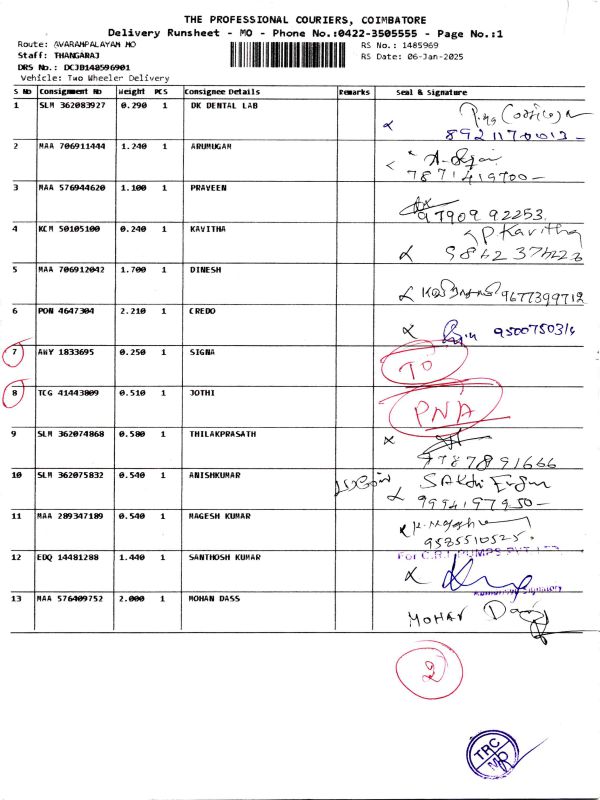 THE PROFESSIONAL COURIERS, COIMBATORE
Delivery Runsheet - MO - Phone No.:0422-3505555 - Page No.:1
Route: AVARAMPALAYAM MO
RS No.: 1485969
Staff: THANGARAJ
RS Date: 06-Jan-2025
DRS No.: DCJB148596901
Vehicle: Two Wheeler Delivery
S No Consignment No Weight PCS Consignee Details Remarks Seal & Signature
1 SLM 362083927 0.290 1 DK DENTAL LAB
8921170013-
2 MAA 706911444 1.240 1 ARUMUGAM
7871419700-
3 MAA 576944620 1.100 1 PRAVEEN
97909 92253
4 KCM 50105100 0.240 1 KAVITHA P Kavitha
5 MAA 706912042 1.700 1 DINESH 9677399712
6 PON 4647304 2.210 1 CREDO 9500750314
7 AWY 1833695 0.250 1 SIGNA TO
8 TCG 41443809 0.510 1 JOTHI PNA
9 SLM 362074868 0.580 1 THILAKPRASATH
9787891666
10 SLM 362075832 0.540 1 ANISHKUMAR
9994197950-
11 MAA 289347189 0.540 1 MAGESH KUMAR
9585510525
12 EDQ 14481288 1.440 1 SANTHOSH KUMAR For C.R.I. PUMPS PVT LTD
Authorised Signatory
13 MAA 576409752 2.000 1 MOHAN DASS MOHAN
2
TRC
MO